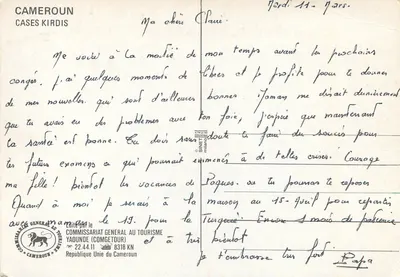 CAMEROUN
CASES KIRDIS
Mardi 11 - Mars.
Ma chère Claire.
Me voici à la moitié de mon temps avant les prochains
congés. J'ai quelques moments de libres et je profite pour te donner
de mes nouvelles qui sont d'ailleurs bonnes. Maman me disait dernièrement
que tu avais eu des problèmes avec ton foie, j'espère que maintenant
la santé est bonne. Tu dois sans doute te faire du soucis pour
tes futurs examens et qui pourrait à de telles crises. Courage
ma fille! bientôt les vacances de Pâques. où tu pourras te reposer
Quand à moi je serais à la maison au 15 Avril pour repartir
avec maman le 19. pour la Turquie. Encore 1 mois de patience
et à très bientôt
je t'embrasse très fort
Papa
Edité par le
COMMISSARIAT GENERAL AU TOURISME
YAOUNDE (COMGETOUR)
22.44.11 8318 KN
République Unie du Cameroun